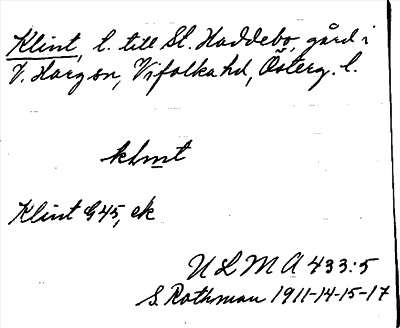 Klint, l. till St. Haddebo, gård i
V. Harg sn, Vifolka hd, Österg. l.
klınt
Klint G45, ek
ULMA 433:5
S. Rothman 1911-14-15-17